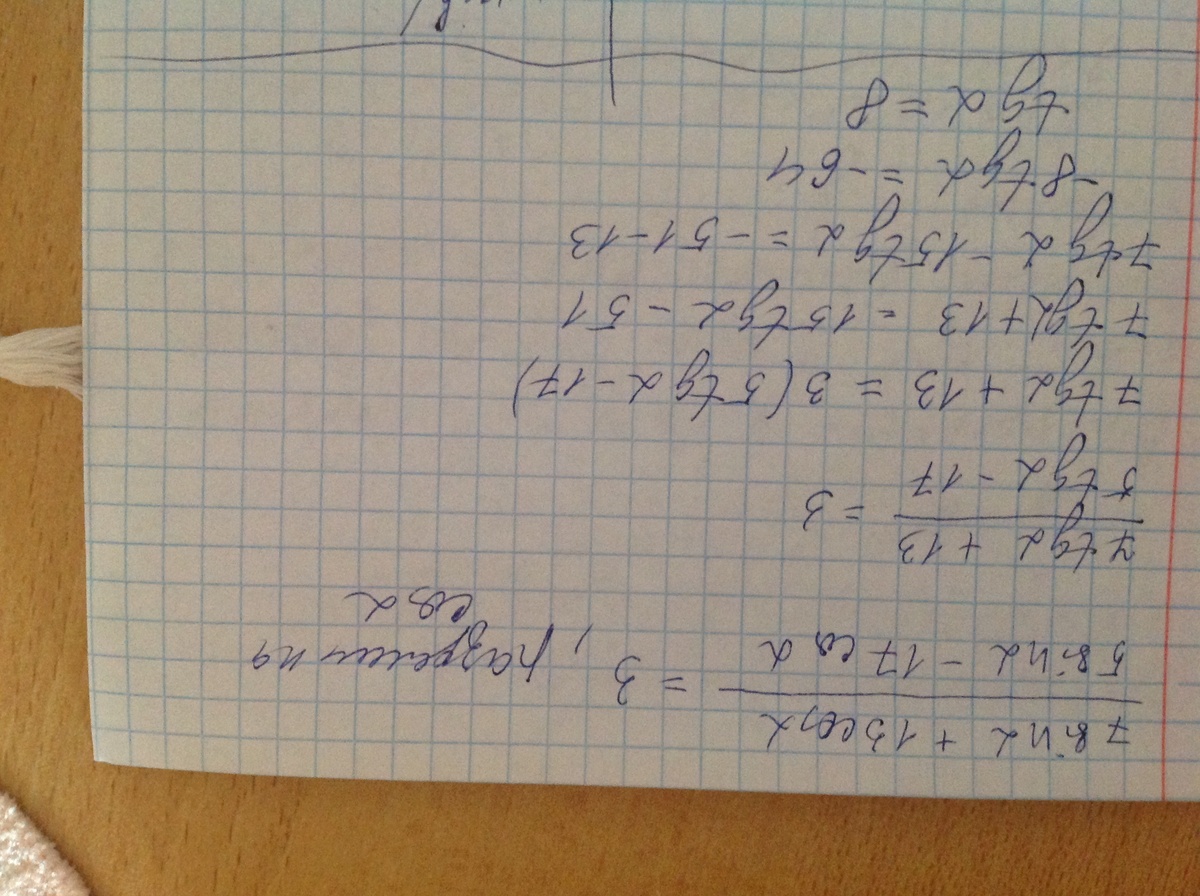 7 sin α + 13 cos α
5 sin α - 17 cos α
= 3 , разделим на
cos α
7 tg α + 13
5 tg α - 17
= 3
7 tg α + 13 = 3(5 tg α - 17)
7 tg α + 13 = 15 tg α - 51
7 tg α - 15 tg α = -51 - 13
-8 tg α = -64
tg α = 8